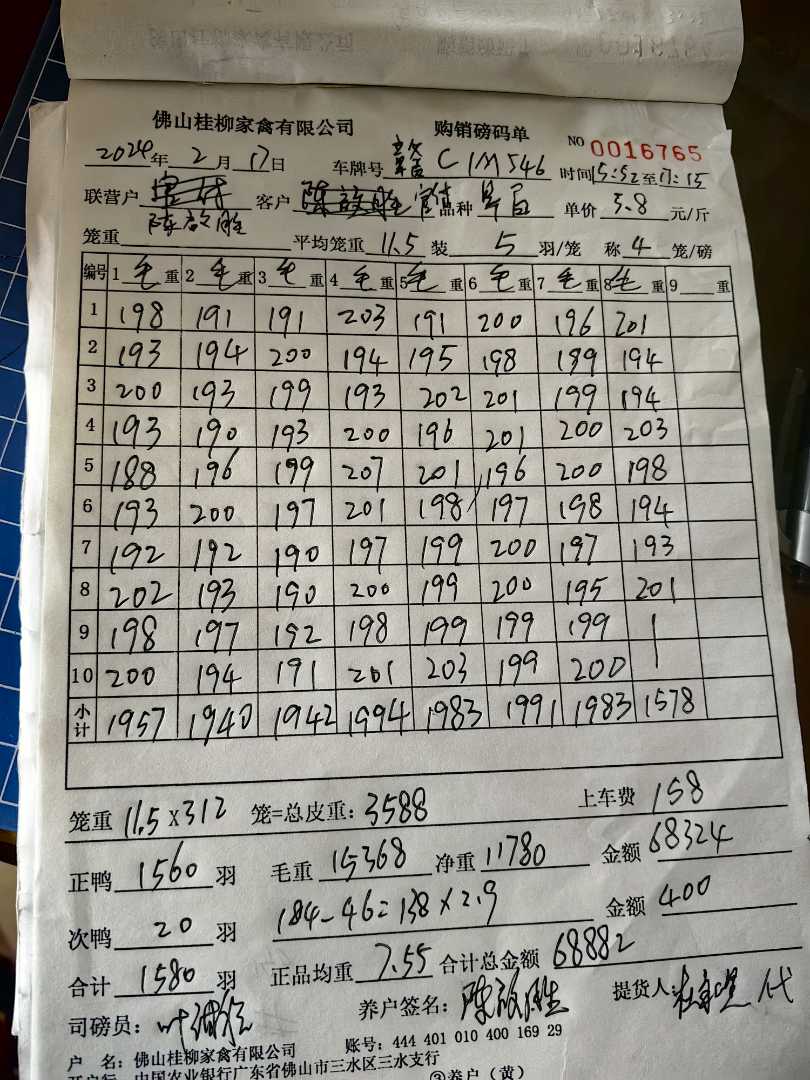 佛山桂柳家禽有限公司 购销磅码单 NO 0016765
2024年2月17日 车牌号 C1M546 时间15:52至17:15
联营户 客户 品种 单价 5.8 元/斤
陈啟胜
笼重 平均笼重 11.5 装 5 羽/笼 称 4 笼/磅
编号 1毛重 2毛重 3毛重 4毛重 5毛重 6毛重 7毛重 8毛重 9重
1 198 191 191 203 191 200 196 201
2 193 194 200 194 195 198 189 194
3 200 193 199 193 202 201 199 194
4 193 190 193 200 196 201 200 203
5 188 196 199 207 201 196 200 198
6 193 200 197 201 198 197 198 194
7 192 192 190 197 199 200 197 193
8 202 193 190 200 199 200 195 201
9 198 197 192 198 199 199 199
10 200 194 191 201 203 199 200
小计 1957 1940 1942 1994 1983 1991 1983 1578
笼重 11.5×312 笼=总皮重: 3588 上车费 158
正鸭 1560 羽 毛重 15368 净重 11780 金额 68324
次鸭 20 羽 184-46=138×2.9 金额 400
合计 1580 羽 正品均重 7.55 合计总金额 68882
司磅员: 养户签名: 陈啟胜 提货人: 代
户 名: 佛山桂柳家禽有限公司 账号: 444 401 010 400 169 29
开户行 中国农业银行广东省佛山市三水区三水支行
③养户（黄）